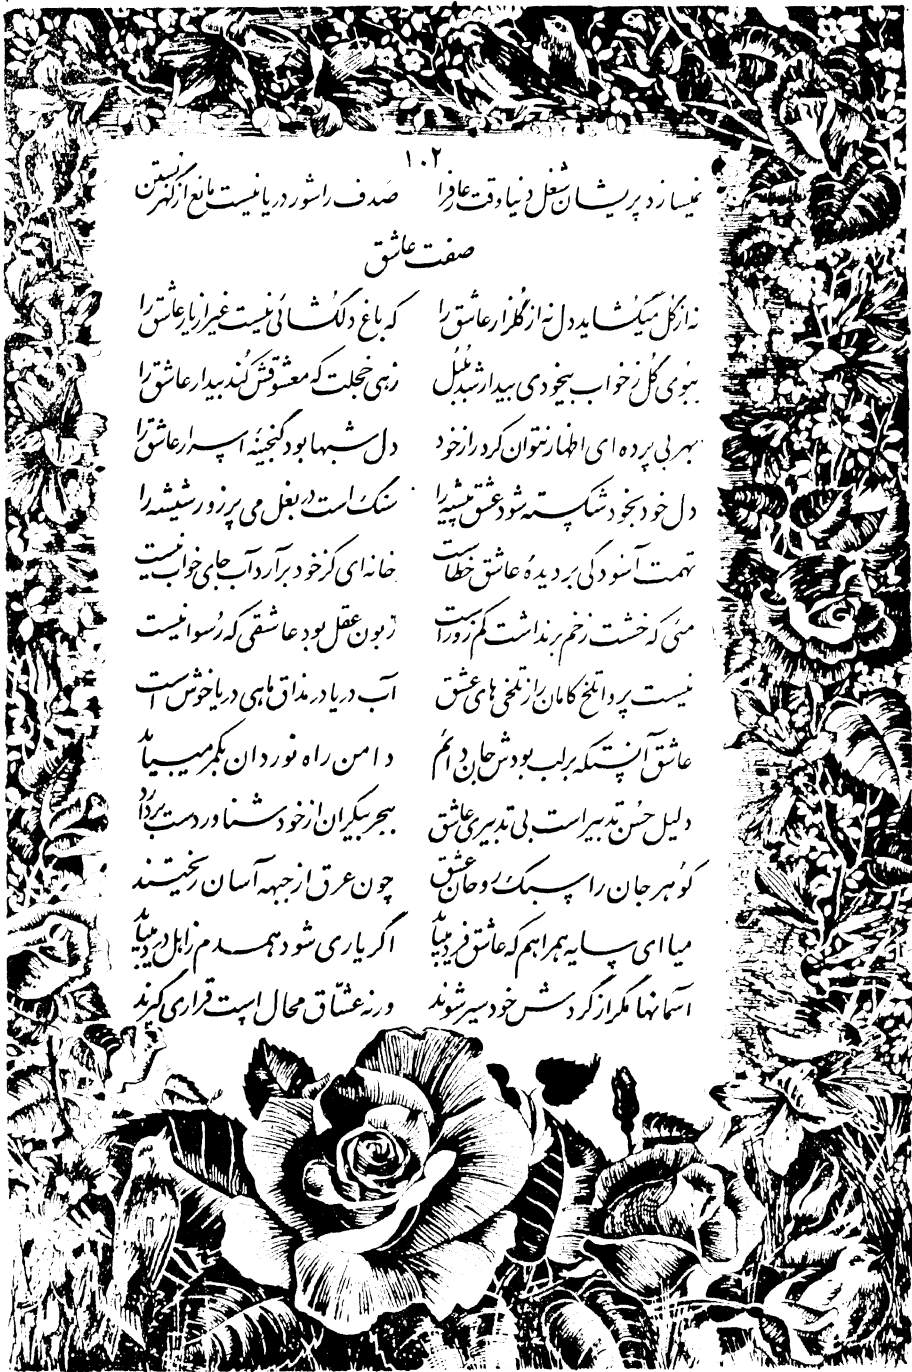 ۱۰۲
نمیسازد پریشان شغل دنیا وقت عارف را    صدف را شور دریا نیست مانع از گهر بستن
صفت عاشق
نه از گل میگشاید دل نه از گلزار عاشق را    که باغ دلگشائی نیست غیر از یار عاشق را
ببوی گل ز خواب بیخودی بیدار شد بلبل    زهی خجلت که معشوقش کند بیدار عاشق را
بهر بی پرده ای اظهار نتوان کرد راز خود    دل شبها بود گنجینهٔ اسرار عاشق را
دل خود بخود شکسته شود عشق پیشه را    سنگ است در بغل می پر زور شیشه را
تهمت آسودگی بر دیدهٔ عاشق خطاست    خانه ای کز خود برآرد آب جای خواب نیست
مئی که خشت ز خم برنداشت کم زور است    زبون عقل بود عاشقی که رسوا نیست
نیست پروا تلخ کامان را ز تلخی های عشق    آب دریا در مذاق ماهی دریا خوش است
عاشق آنستکه بر لب بودش جان دائم    دامن راه نوردان بکمر میباید
دلیل حسن تدبیر است بی تدبیری عاشق    ببحر بیکران از خود شناور دست بردارد
گوهر جان را سبک روحان عشق    چون عرق از جبهه آسان ریختند
میا ای سایه همراهم که عاشق فرد میباید    اگر یاری شود همدم ز اهل درد میباید
آسمانها مگر از گردش خود سیر شوند    ورنه عشاق محال است قراری گیرند